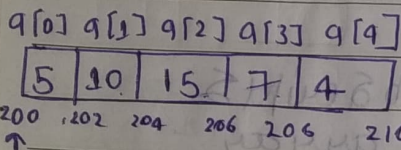 a[0] a[1] a[2] a[3] a[4]
5 10 15 7 4
200 202 204 206 208